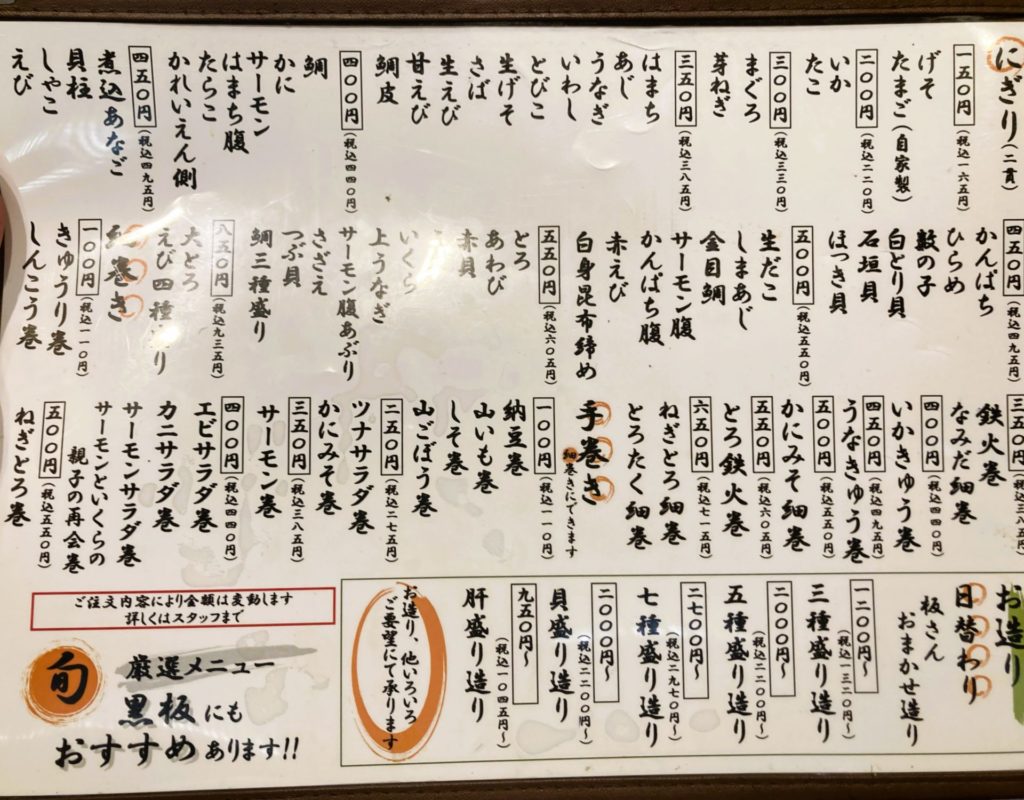 にぎり(二貫)
一五〇円(税込一六五円)
げそ
たまご(自家製)
二〇〇円(税込二二〇円)
いか
たこ
三〇〇円(税込三三〇円)
まぐろ
芽ねぎ
三五〇円(税込三八五円)
はまち
あじ
うなぎ
いわし
とびこ
生げそ
さば
生えび
甘えび
鯛皮
四〇〇円(税込四四〇円)
鯛
かに
サーモン
はまち腹
たらこ
かれいえん側
四五〇円(税込四九五円)
煮込あなご
貝柱
しゃこ
えび
四五〇円(税込四九五円)
かんぱち
ひらめ
数の子
白とり貝
石垣貝
ほっき貝
五〇〇円(税込五五〇円)
生だこ
しまあじ
金目鯛
サーモン腹
かんぱち腹
赤えび
白身昆布締め
五五〇円(税込六〇五円)
とろ
あわび
赤貝
いくら
上うなぎ
サーモン腹あぶり
さざえ
つぶ貝
鯛三種盛り
八五〇円(税込九三五円)
大とろ
えび四種盛り
細巻き
一〇〇円(税込一一〇円)
きゅうり巻
しんこう巻
三五〇円(税込三八五円)
鉄火巻
なみだ細巻
四〇〇円(税込四四〇円)
いかきゅう巻
四五〇円(税込四九五円)
うなきゅう巻
五〇〇円(税込五五〇円)
かにみそ細巻
五五〇円(税込六〇五円)
とろ鉄火巻
六五〇円(税込七一五円)
ねぎとろ細巻
とろたく細巻
手巻き
細巻きにできます
一〇〇円(税込一一〇円)
納豆巻
山いも巻
しそ巻
山ごぼう巻
二五〇円(税込二七五円)
ツナサラダ巻
かにみそ巻
三五〇円(税込三八五円)
サーモン巻
四〇〇円(税込四四〇円)
エビサラダ巻
カニサラダ巻
サーモンサラダ巻
サーモンといくらの
親子の再会巻
五〇〇円(税込五五〇円)
ねぎとろ巻
お造り
日替わり
板さん
おまかせ造り
一二〇〇円〜
(税込一三二〇円〜)
三種盛り造り
二〇〇〇円〜
(税込二二〇〇円〜)
五種盛り造り
二七〇〇円〜
(税込二九七〇円〜)
七種盛り造り
二〇〇〇円〜
(税込二二〇〇円〜)
貝盛り造り
九五〇円〜
(税込一〇四五円〜)
肝盛り造り
お造り、他いろいろ
ご要望にて承ります
ご注文内容により金額は変動します
詳しくはスタッフまで
旬
厳選メニュー
黒板にも
おすすめあります!!